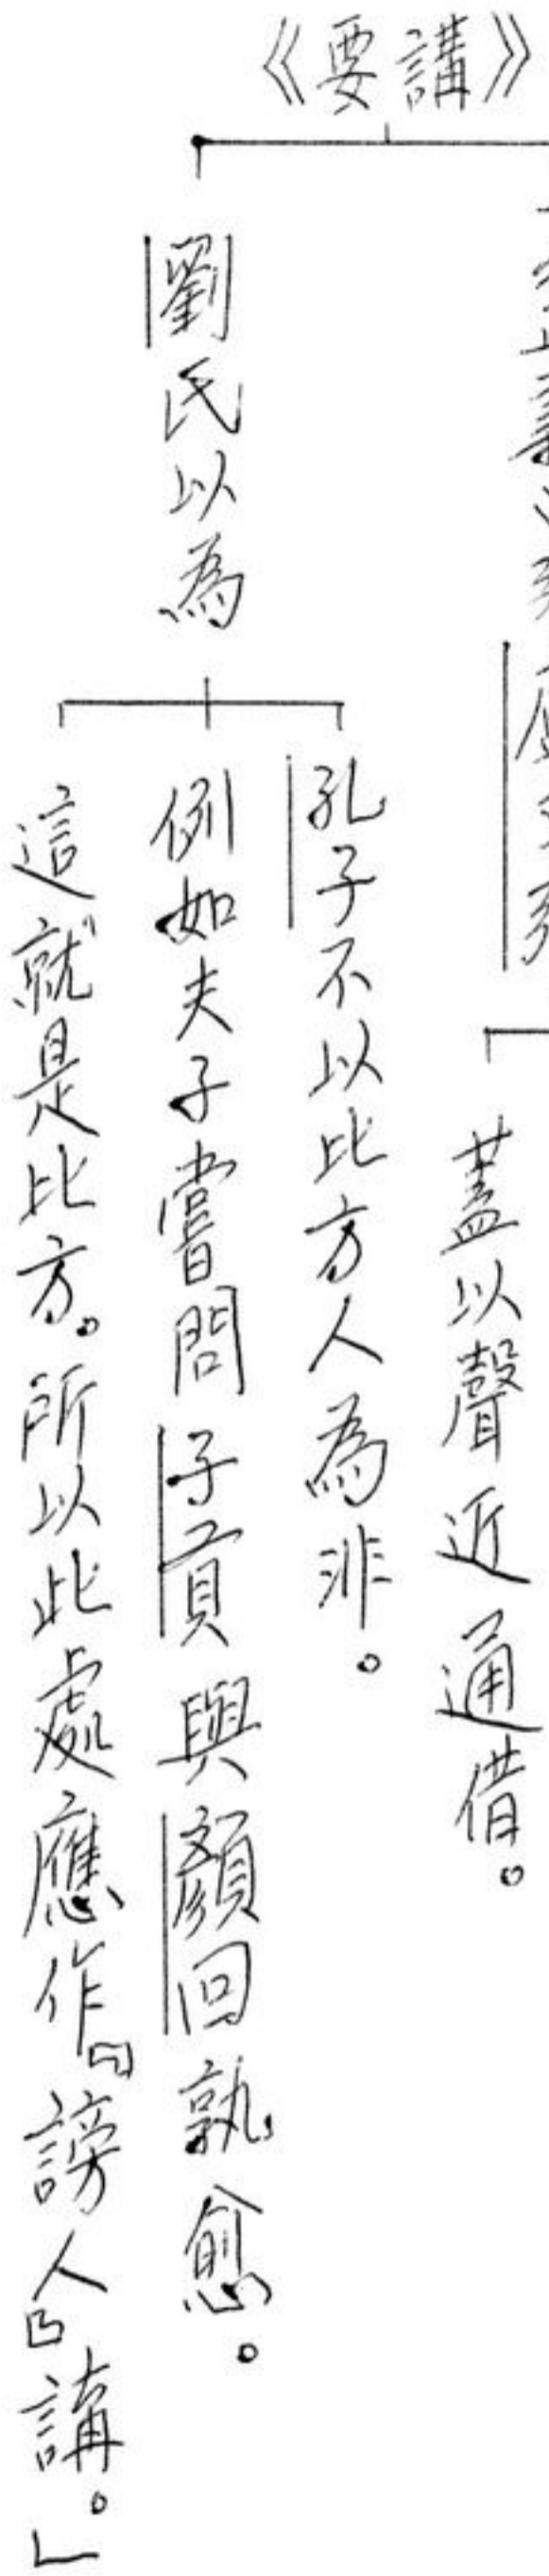 《要講》
蓋以聲近通借。
劉氏以為
孔子不以比方人為非。
例如夫子嘗問子貢與顏回孰愈。
這就是比方。所以此處應作『謗人』講。」